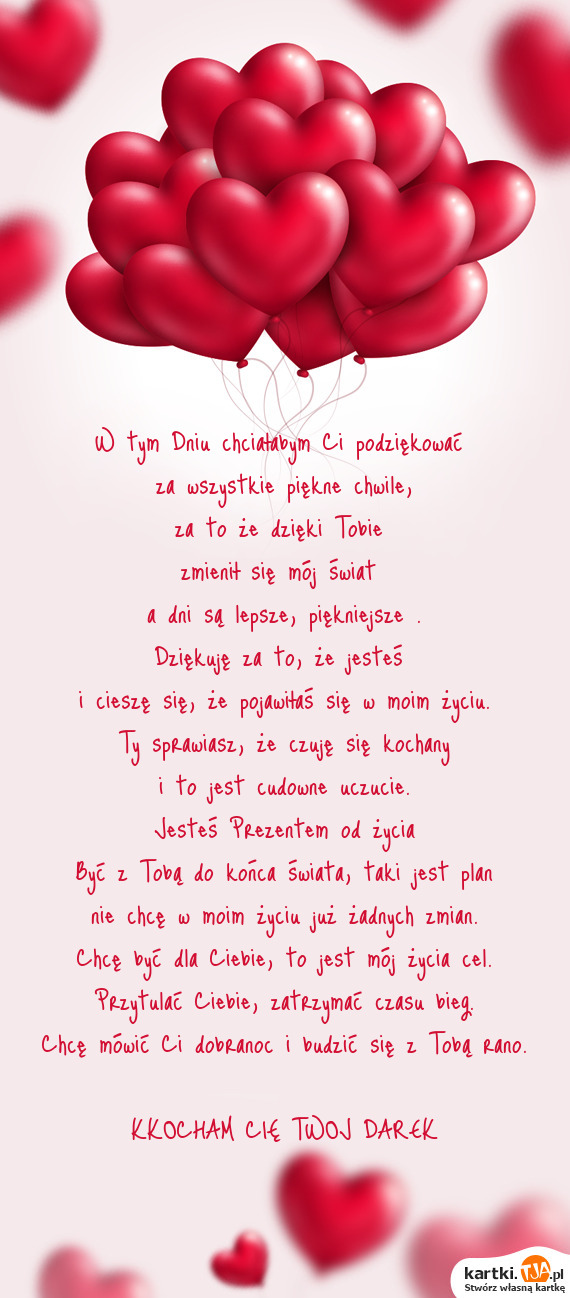 W tym Dniu chciałabym Ci podziękować
za wszystkie piękne chwile,
za to że dzięki Tobie
zmienił się mój świat
a dni są lepsze, piękniejsze .
Dziękuję za to, że jesteś
i cieszę się, że pojawiłaś się w moim życiu.
Ty sprawiasz, że czuję się kochany
i to jest cudowne uczucie.
Jesteś Prezentem od życia
Być z Tobą do końca świata, taki jest plan
nie chcę w moim życiu już żadnych zmian.
Chcę być dla Ciebie, to jest mój życia cel.
Przytulać Ciebie, zatrzymać czasu bieg.
Chcę mówić Ci dobranoc i budzić się z Tobą rano.
KKOCHAM CIĘ TWOJ DAREK
kartki.TJA.pl
Stwórz własną kartkę